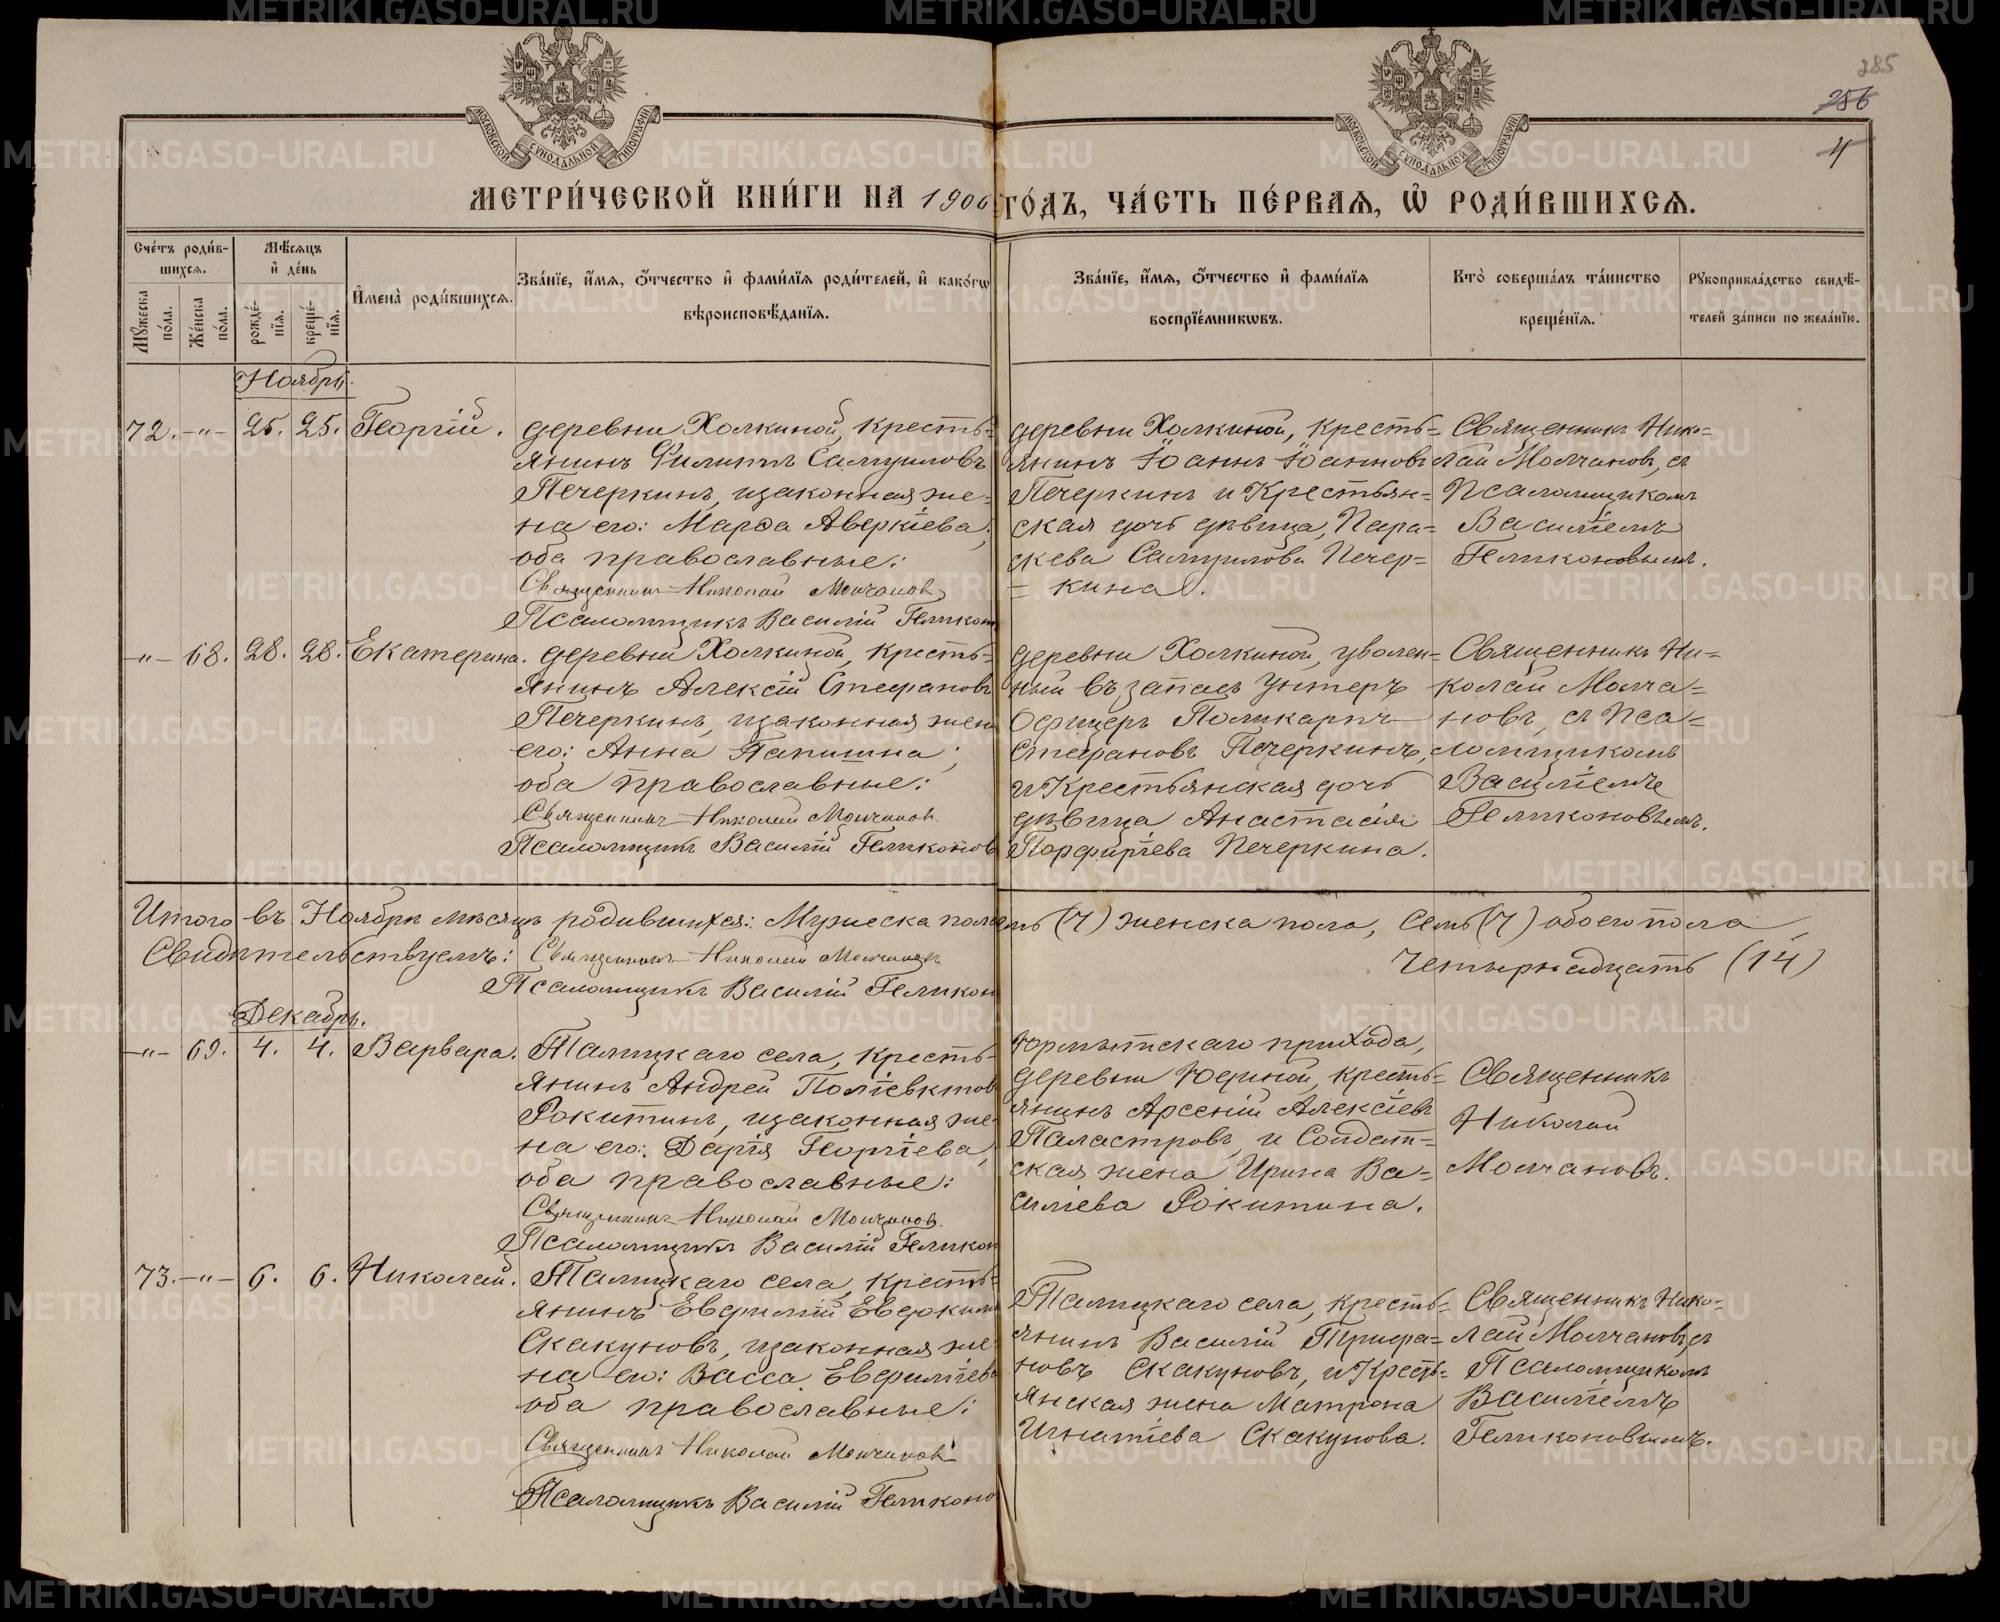 285
256
4
МОСКОВСКОЙ СѴНОДАЛЬНОЙ ТИПОГРАФІИ
МОСКОВСКОЙ СѴНОДАЛЬНОЙ ТИПОГРАФІИ
МЕТРИ́ЧЕСКОЙ КНИ́ГИ НА 1900 ГО́ДЪ, ЧА́СТЬ ПЕ́РВАѦ, Ѡ҆ РОДИ́ВШИХСѦ.
Сче́тъ роди́в-
шихсѧ.
Мꙋжеска по́ла.
Же́нска по́ла.
Мѣ́сѧцъ
и҆ де́нь
рожде́-
нїѧ.
креще́-
нїѧ.
И҆мена̀ роди́вшихсѧ.
Зва́нїе, и҆́мѧ, ѻ҆́тчество и҆ фами́лїѧ роди́телей, и҆ како́гѡ
вѣроисповѣ́данїѧ.
Зва́нїе, и҆́мѧ, ѻ҆́тчество и҆ фами́лїѧ
воспрїе́мникѡвъ.
Кто̀ соверша́лъ та́инство
креще́нїѧ.
Рꙋкоприкла́дство свидѣ́-
телей за́писи по жела́нїю.
Ноябрь.
72. -"- 25. 25. Георгій.
деревни Холкиной, кресть-
янинъ Филиппъ Самуиловъ
Печеркинъ, и законная же-
на его: Марѳа Аверкіева,
оба православные:
Священникъ Николай Молчановъ
Псаломщикъ Василій Геликон
деревни Холкиной, кресть=
янинъ Іоаннъ Іоанновъ
Печеркинъ и Крестьян=
ская дочь дѣвица, Пара=
скева Самуилова Печер=
= кина.
Священникъ Нико=
лай Молчановъ, съ
Псаломщикомъ
Василіемъ
Геликоновымъ.
-"- 68. 28. 28. Екатерина.
деревни Холкиной, кресть-
янинъ Алексій Стефановъ
Печеркинъ, и законная жена
его: Анна Папишна;
оба православные:
Священникъ Николай Молчановъ
Псаломщикъ Василій Геликонов
деревни Холкиной, уволен=
ный въ запасъ Унтеръ
Офицеръ Поликарпъ
Стефановъ Печеркинъ,
и Крестьянская дочь
дѣвица Анастасія
Порфиріева Печеркина.
Священникъ Ни=
колай Молча=
новъ, съ Пса=
ломщикомъ
Василіемъ
Геликоновымъ.
Итого въ Ноябрѣ мѣсяцѣ родившихся: Мужеска пола семь (7) женска пола, Семь (7) обоего пола,
Свидѣтельствуемъ: Священникъ Николай Молчановъ
Четырнадцать (14)
Псаломщикъ Василій Геликон
Декабрь.
-"- 69. 4. 4. Варвара.
Талицкаго села, кресть-
янинъ Андрей Поліевктов
Рокитинъ, и законная же-
на его: Дарія Георгіева,
оба православные:
Священникъ Николай Молчановъ.
Псаломщикъ Василій Геликон
Юрмытскаго прихода,
деревни Юдиной, кресть=
янинъ Арсеній Алексіевъ
Паластровъ, и Солдат=
ская жена Ирина Ва=
силіева Рокитина.
Священникъ
Николай
Молчановъ.
73. -"- 6. 6. Николай.
Талицкаго села, кресть=
янинъ Евфимій Евдоким
Скакуновъ, и законная же
на его: Васса Евфиміева
оба православные:
Священникъ Николай Молчановъ
Псаломщикъ Василій Геликоно
Талицкаго села, кресть=
янинъ Василій Трифа=
новъ Скакуновъ, и Кресть=
янская жена Матрона
Игнатіева Скакунова.
Священникъ Нико=
лай Молчановъ съ
Псаломщикомъ
Василіемъ
Геликоновымъ.
METRIKI.GASO-URAL.RU